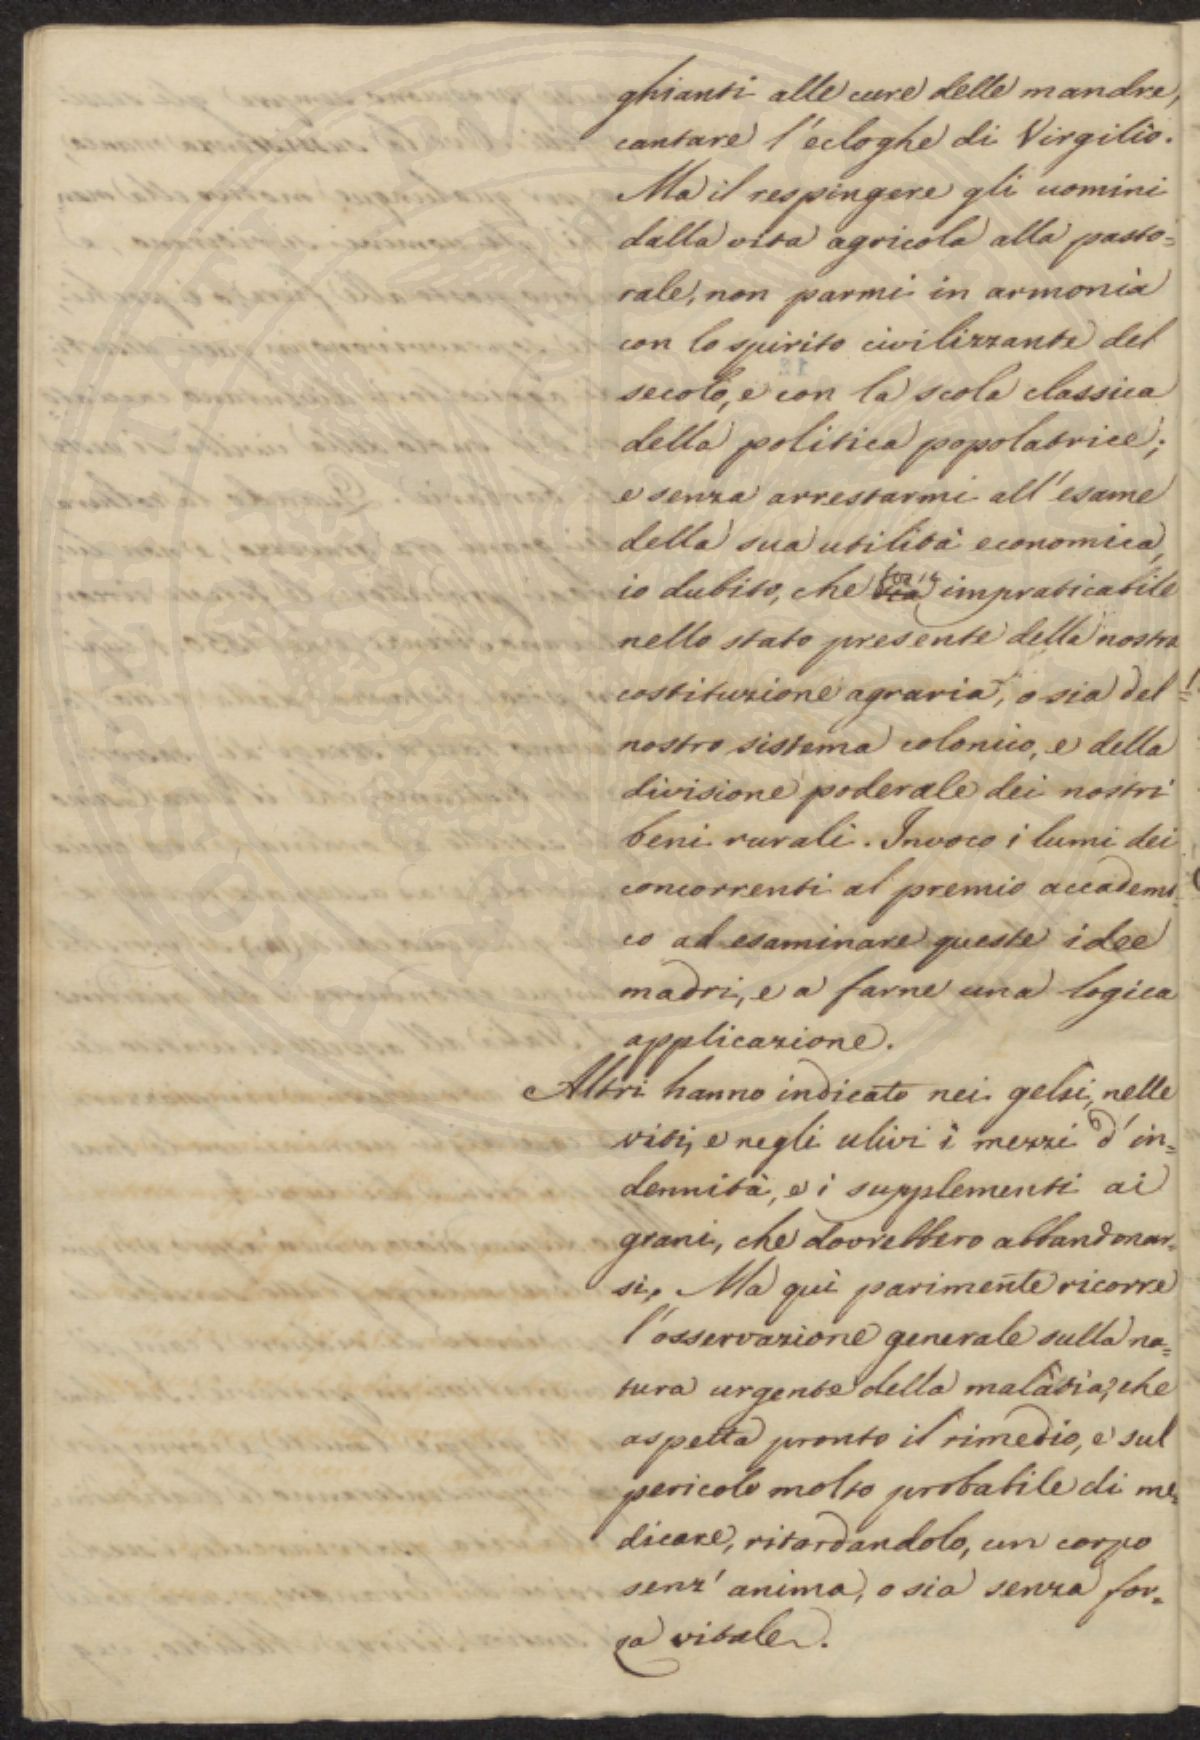 ghianti alle cure delle mandre,
cantare l'ecloghe di Virgilio.
Ma il respingere gli uomini
dalla vita agricola alla pasto=
rale, non parmi in armonia
con lo spirito civilizzante del
secolo, e con la scola classica
della politica popolatrice;
e senza arrestarmi all'esame
della sua utilità economica,
io dubito, che sia impraticabile
nello stato presente della nostra
costituzione agraria, o sia del
nostro sistema colonico, e della
divisione poderale dei nostri
beni rurali. Invoco i lumi dei
concorrenti al premio accademi=
co ad esaminare queste idee
madri, e a farne una logica
applicazione.
Altri hanno indicato nei gelsi, nelle
viti, e negli ulivi i mezzi d'in=
dennità, e i supplementi ai
grani, che dovrebbero abbandonar=
si. Ma quì parimente ricorre
l'osservazione generale sulla na=
tura urgente della malatia, che
aspetta pronto il rimedio, e sul
pericolo molto probabile di me=
dicare, ritardandolo, un corpo
senz'anima, o sia senza for=
za vitale.